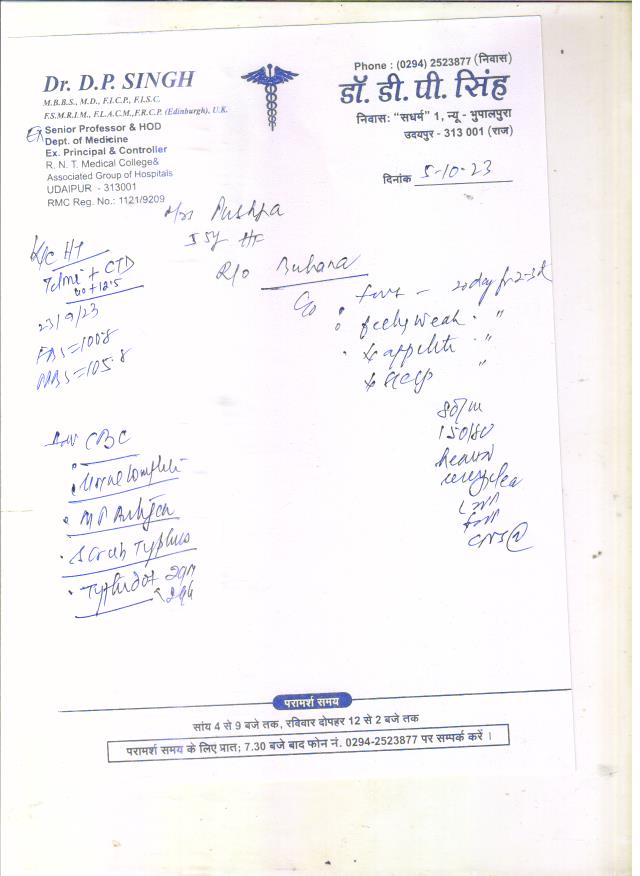 Dr. D.P. SINGH
M.B.B.S., M.D., F.I.C.P., F.I.S.C.
F.S.M.R.I.M., F.L.A.C.M.,F.R.C.P. (Edinburgh), U.K.
Ex Senior Professor & HOD
Dept. of Medicine
Ex. Principal & Controller
R. N. T. Medical College&
Associated Group of Hospitals
UDAIPUR - 313001
RMC Reg. No.: 1121/9209
Phone : (0294) 2523877 (निवास)
डॉ. डी. पी. सिंह
निवास: "सधर्म" 1, न्यू - भुपालपुरा
उदयपुर - 313 001 (राज)
दिनांक 5-10-23
Mrs Pushpa
55y
R/o Buhana
K/C HT
Telmi + CTD
+ 12.5
23/9/23
FBS = 100.8
PPBS = 105.8
C/o
fever - 20 day
feeling weak "
↓ appetite "
↓ sleep "
80/m
150/80
CNS
Adv CBC
Urine Complete
MP Antigen
Scrub Typhus
Typhidot IgM
IgG
परामर्श समय
सांय 4 से 9 बजे तक, रविवार दोपहर 12 से 2 बजे तक
परामर्श समय के लिए प्रात; 7.30 बजे बाद फोन नं. 0294-2523877 पर सम्पर्क करें ।